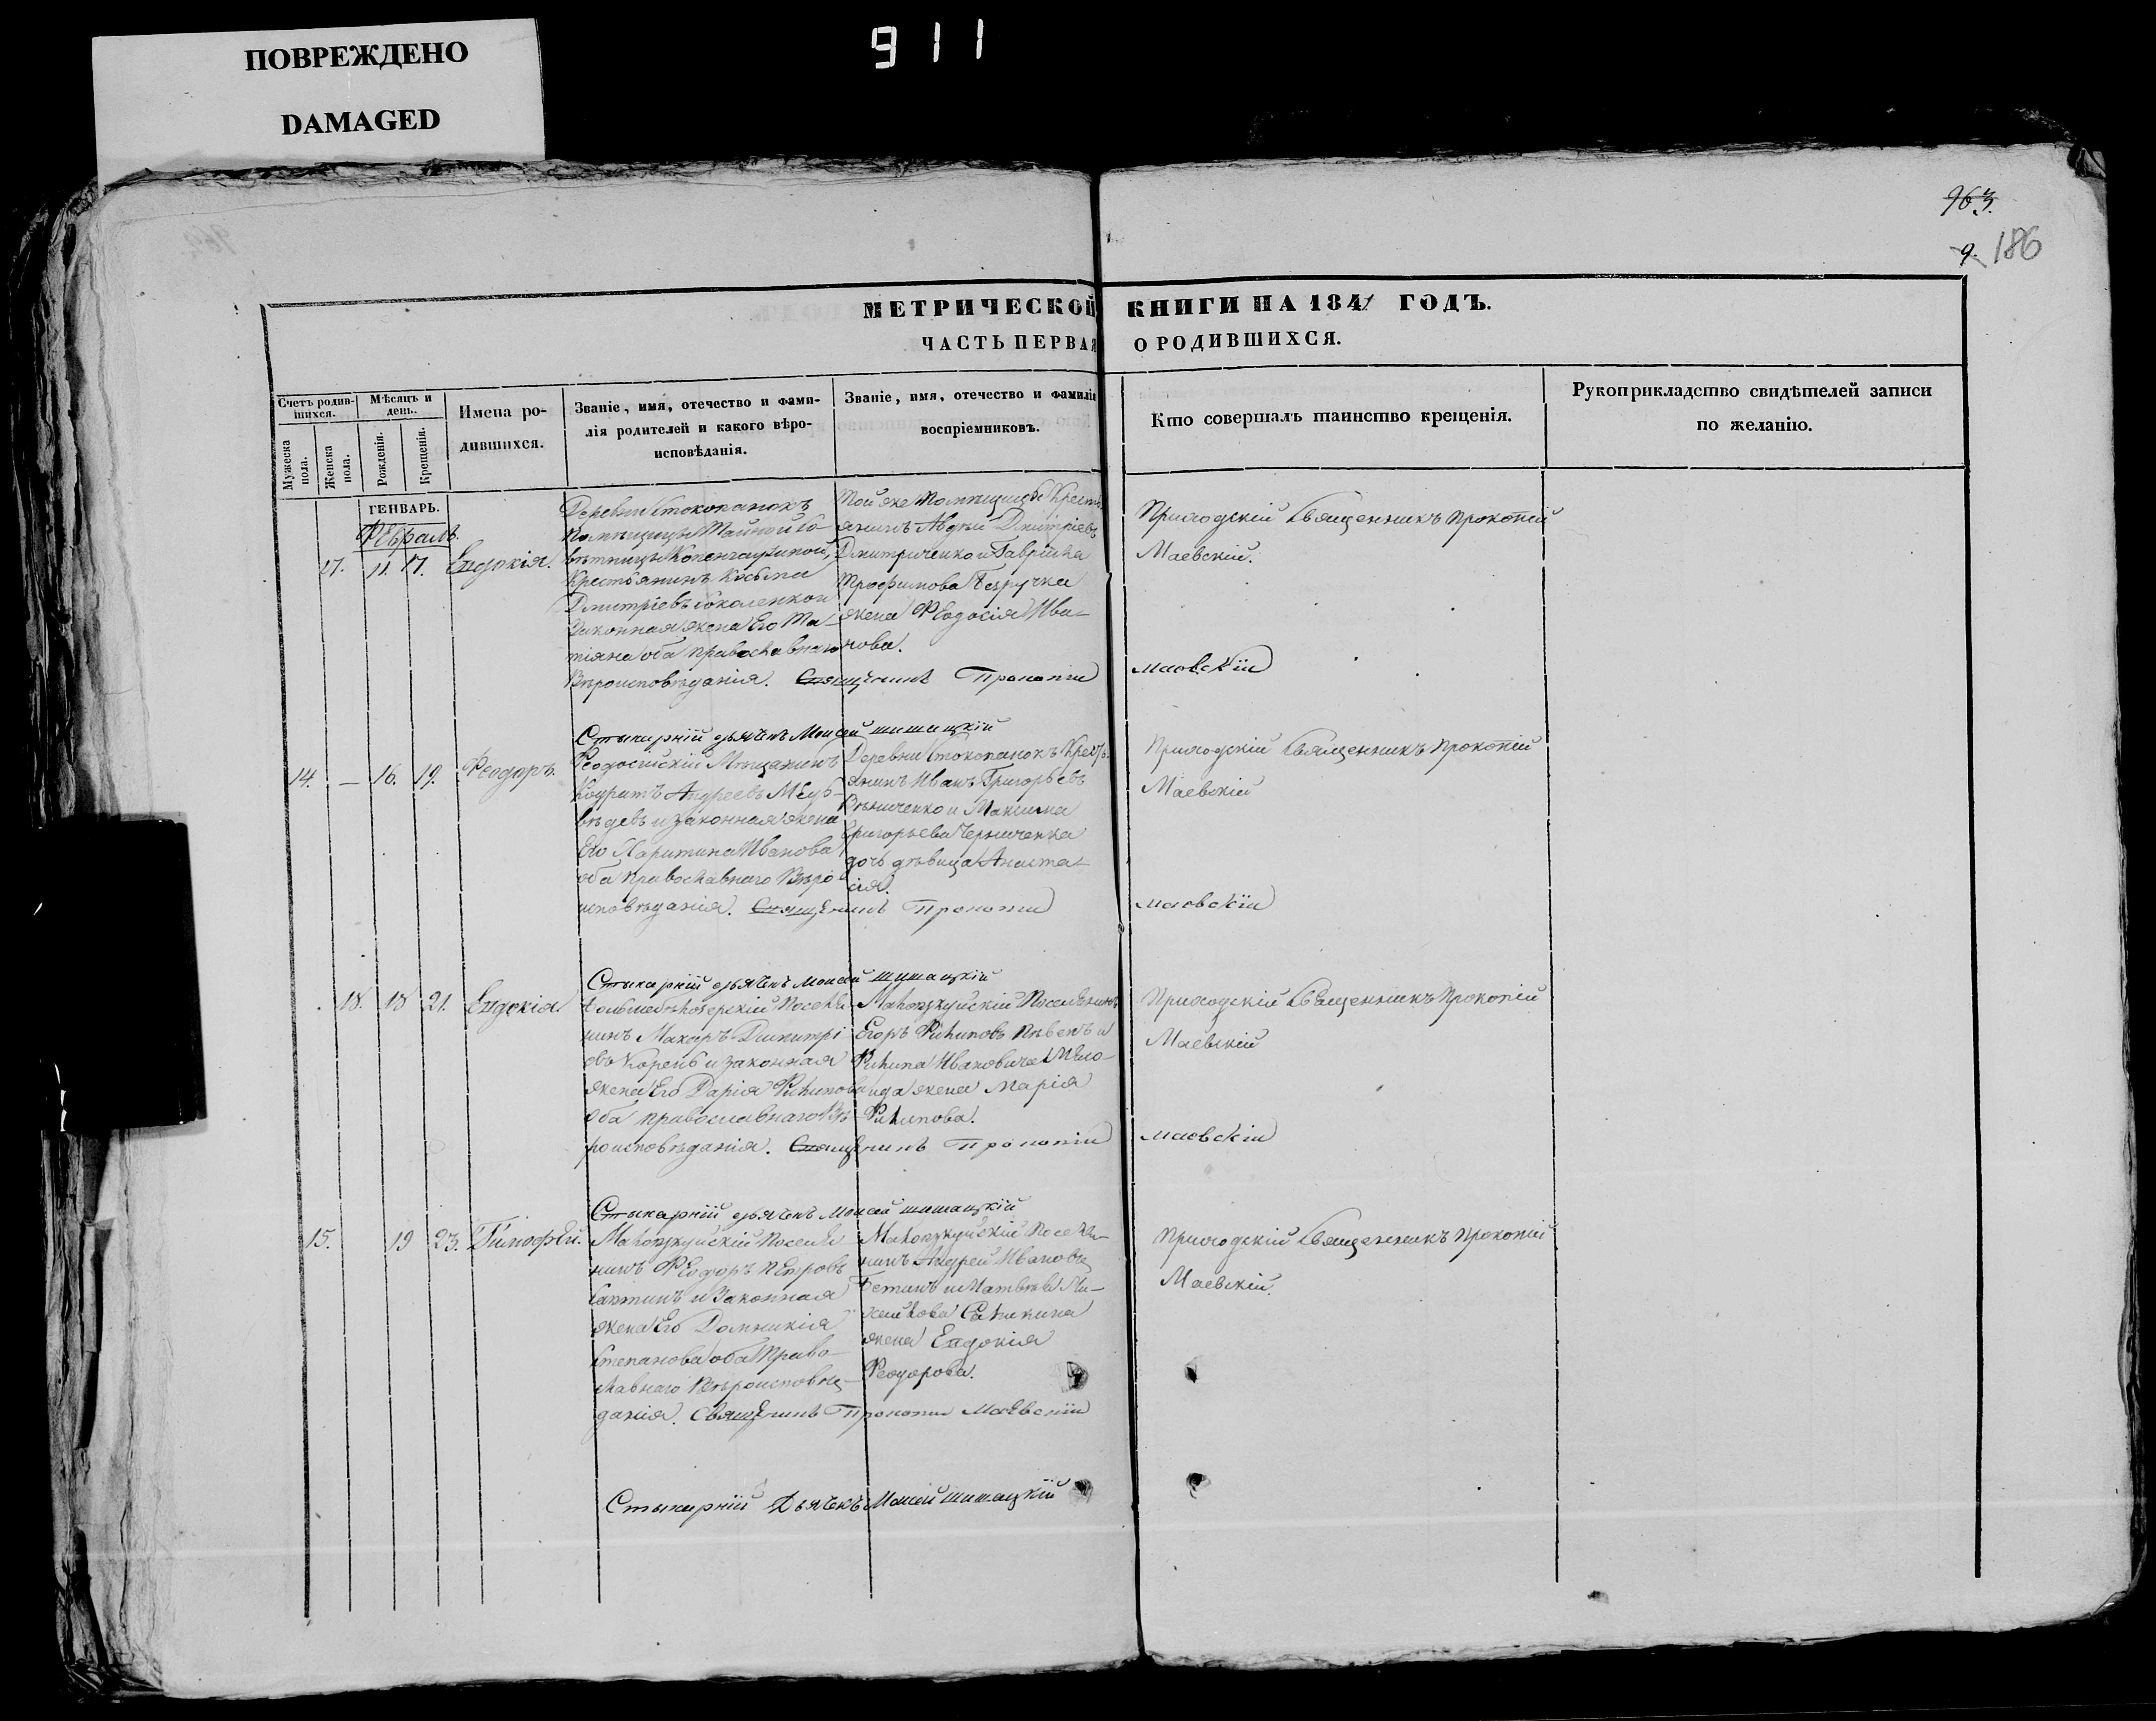 ПОВРЕЖДЕНО
DAMAGED
911
963.
9. 186
МЕТРИЧЕСКОЙ КНИГИ НА 1841 ГОДЪ.
ЧАСТЬ ПЕРВАЯ О РОДИВШИХСЯ.
Счетъ родившихся.
Мѣсяцъ и день.
Мужеска пола.
Женска пола.
Рожденія.
Крещенія.
Имена родившихся.
Званіе, имя, отечество и фамилія родителей и какого вѣроисповѣданія.
Званіе, имя, отечество и фамилія воспріемниковъ.
Кто совершалъ таинство крещенія.
Рукоприкладство свидѣтелей записи по желанію.
ГЕНВАРЬ.
Февраль.
17. 11. 17. Евдокія.
Деревни Стокопанокъ
помѣщицы Тайной Со-
вѣтницы
Крестьянинъ Косьма
Дмитріевъ Соколенкои
Законная жена Его Та-
тіяна оба православнаго
Вѣроисповѣданія. Священникъ Прокопій Маевскій
Той же Помѣщицы Кресть
янинъ Авдѣй Дмитріевъ
Дмитриченко и Гавріила
Трофимова Безручка
жена Феодосія Ива-
нова.
Приходскій Священникъ Прокопій
Маевскій.
Стихарный дьячекъ Моисей Шишацкій
14. — 16. 19. Феодоръ.
Феодосійскій Мѣщанинъ
Кодратъ Андреевъ Медъ-
вѣдевъ и законная жена
Его Харитина Иванова
оба православнаго Вѣро
исповѣданія. Священникъ Прокопій Маевскій
Деревни Стокопанокъ Кресть
янинъ Иванъ Григорьевъ
и Максима
Григорьева Черниченка
дочь дѣвица Анаста-
сія.
Приходскій Священникъ Прокопій
Маевскій
Стихарный дьячекъ Моисей Шишацкій
18. 18 21. Евдокія
Поселя
нинъ Макаръ Димитрі
евъ Корень и законная
жена Его Дарія Филипова
Оба православнаго Вѣ-
роисповѣданія. Священникъ Прокопій Маевскій
Поселянинъ
Егоръ Филиповъ Пѣвенъ и
Филипа Ивановича
жена Марія
Филипова.
Приходскій Священникъ Прокопій
Маевскій
Стихарный дьячекъ Моисей Шишацкій
15. 19 23. Тимофей.
Поселя
нинъ Феодоръ Петровъ
и Законная
жена Его Домникія
Степанова оба Право-
славнаго Вѣроисповѣ-
данія. Священникъ Прокопій Маевскій
Поселя-
нинъ Андрей Ивановъ
Бетинъ и Матвѣя Ми-
хайлова
жена Евдокія
Феодорова.
Приходскій Священникъ Прокопій
Маевскій.
Стихарный Дьячекъ Моисей Шишацкій